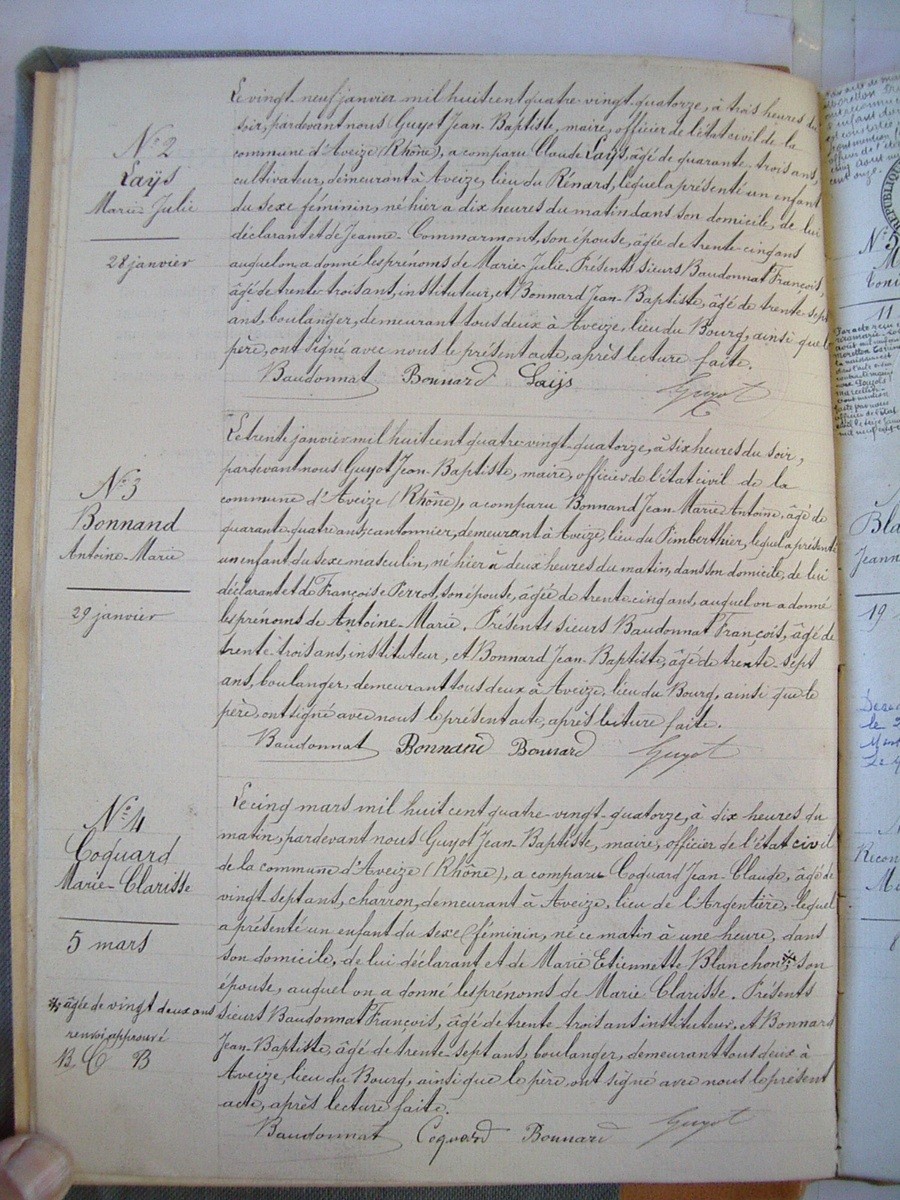 N° 2
Laÿs
Marie-Julie
28 janvier
Le vingt-neuf janvier mil huit cent quatre-vingt-quatorze, à trois heures du
soir, pardevant nous Guyot Jean-Baptiste, maire, officier de l'état civil de la
commune d'Aveize (Rhône), a comparu Claude Laÿs, âgé de quarante-trois ans,
cultivateur, demeurant à Aveize, lieu du Rénard, lequel a présenté un enfant
du sexe féminin, né hier a dix heures du matin dans son domicile, de lui
déclarant et de Jeanne-Commarmont, son épouse, âgée de trente-cinq ans
auquel on a donné les prénoms de Marie-Julie. Présents sieurs Baudonnat François,
âgé de trente-trois ans, instituteur, et Bonnard Jean-Baptiste, âgé de trente-sept
ans, boulanger, demeurant tous deux à Aveize, lieu du Bourg, ainsi que le
père, ont signé avec nous le présent acte, après lecture faite.
Baudonnat Bonnard Laÿs Guyot
N° 3
Bonnand
Antoine-Marie
29 janvier
Le trente janvier mil huit cent quatre-vingt-quatorze, à six heures du soir,
pardevant nous Guyot Jean-Baptiste, maire, officier de l'état civil de la
commune d'Aveize (Rhône), a comparu Bonnand Jean-Marie Antoine, âgé de
quarante-quatre ans, cantonnier, demeurant à Aveize, lieu du Pimberthier, lequel a présenté
un enfant du sexe masculin, né hier à deux heures du matin, dans son domicile, de lui
déclarant et de Françoise Perrot, son épouse, âgée de trente-cinq ans, auquel on a donné
les prénoms de Antoine-Marie. Présents sieurs Baudonnat François, âgé de
trente-trois ans, instituteur, et Bonnard Jean-Baptiste, âgé de trente-sept
ans, boulanger, demeurant tous deux à Aveize, lieu du Bourg, ainsi que le
père, ont signé avec nous le présent acte, après lecture faite.
Baudonnat Bonnand Bonnard Guyot
N° 4
Coquard
Marie-Clarisse
5 mars
âgée de vingt deux ans
renvoi approuvé
B C B
Le cinq mars mil huit cent quatre-vingt-quatorze, à dix heures du
matin, pardevant nous Guyot Jean-Baptiste, maire, officier de l'état civil
de la commune d'Aveize (Rhône), a comparu Coquard Jean-Claude, âgé de
vingt-sept ans, charron, demeurant à Aveize, lieu de l'Argentière, lequel
a présenté un enfant du sexe féminin, né ce matin à une heure, dans
son domicile, de lui déclarant et de Marie Etiennette Blanchon, son
épouse, auquel on a donné les prénoms de Marie Clarisse. Présents
sieurs Baudonnat François, âgé de trente-trois ans instituteur, et Bonnard
Jean-Baptiste, âgé de trente-sept ans, boulanger, demeurant tous deux à
Aveize, lieu du Bourg, ainsi que le père, ont signé avec nous le présent
acte, après lecture faite.
Baudonnat Coquard Bonnard Guyot